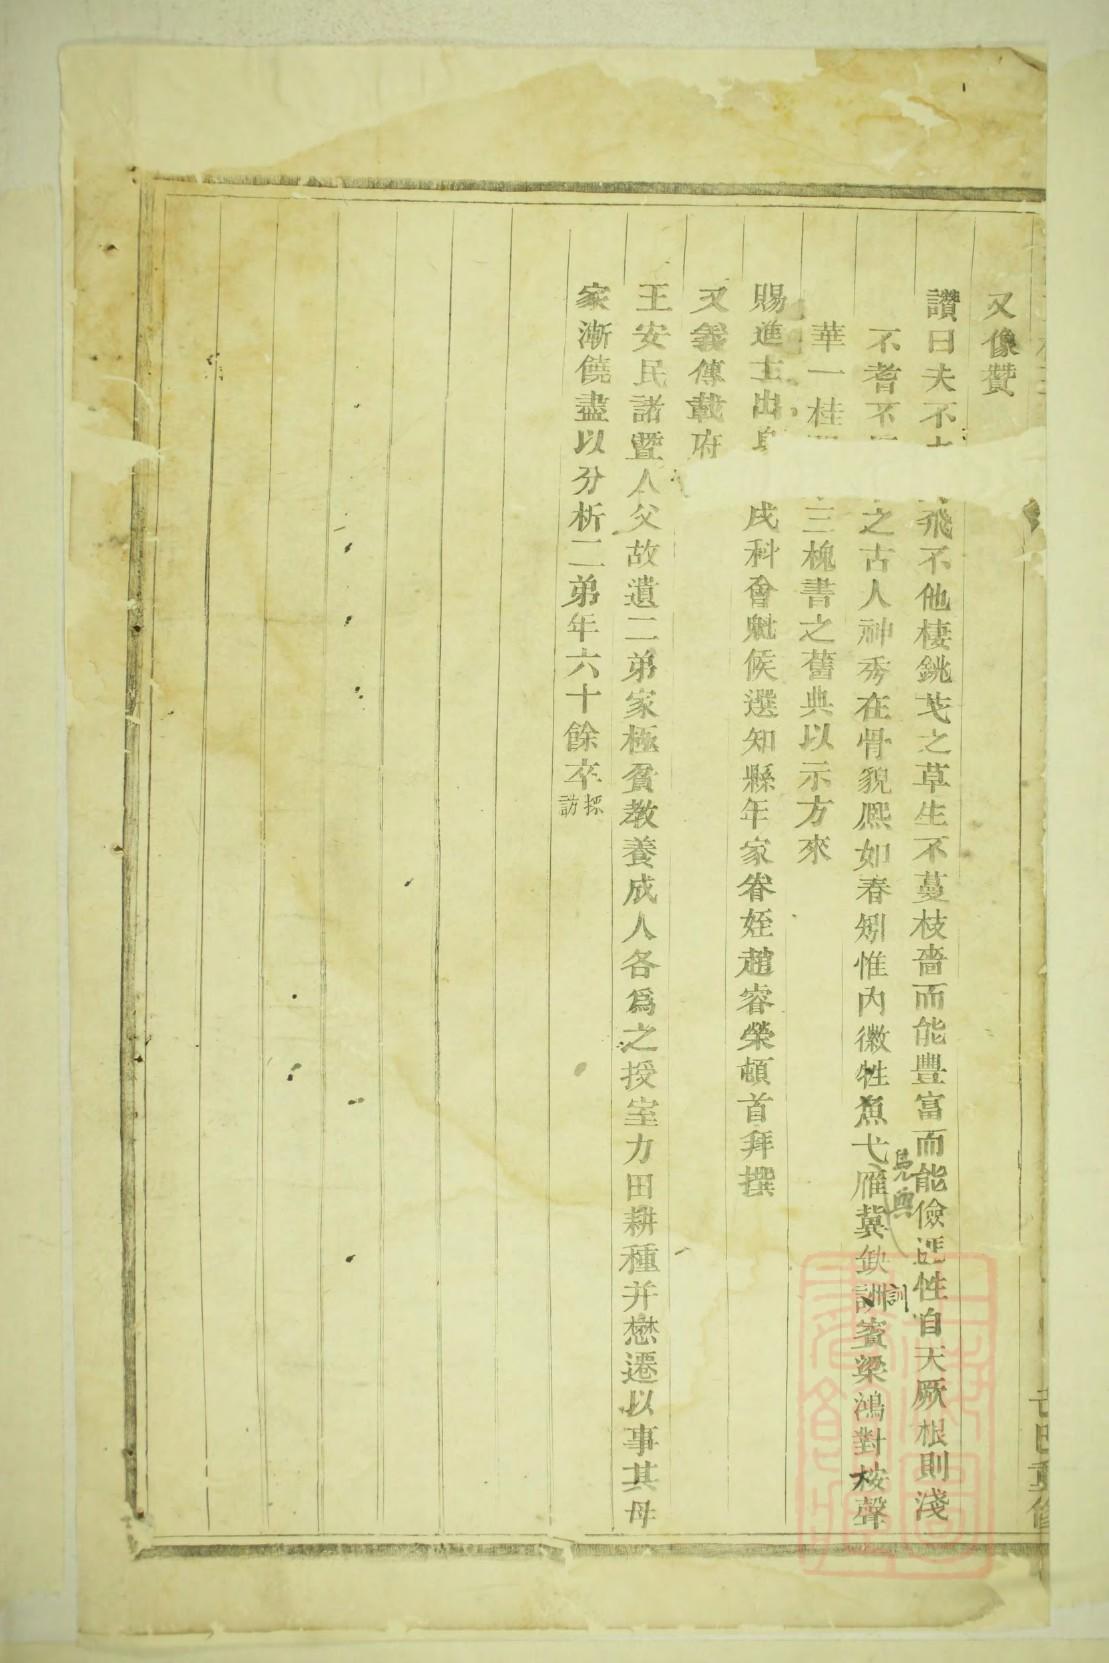 又像贊
讚曰夫不
飛不他棲銚芅之草生不蔓枝嗇而能豐富而能儉 性自天厥根則淺
不耆不
之古人神秀在骨貌熙如春矧惟內徽牲魚弋雁冀缺訓賓梁鴻對桉聲
訓
華一桂
三槐書之舊典以示方來
賜進士出身
戌科會魁候選知縣年家眷姪趙睿榮頓首拜撰
又義傳載府
王安民諸暨人父故遺二弟家極貧教養成人各爲之授室力田耕種并懋遷以事其母
家漸饒盡以分析二弟年六十餘卒採訪
重修